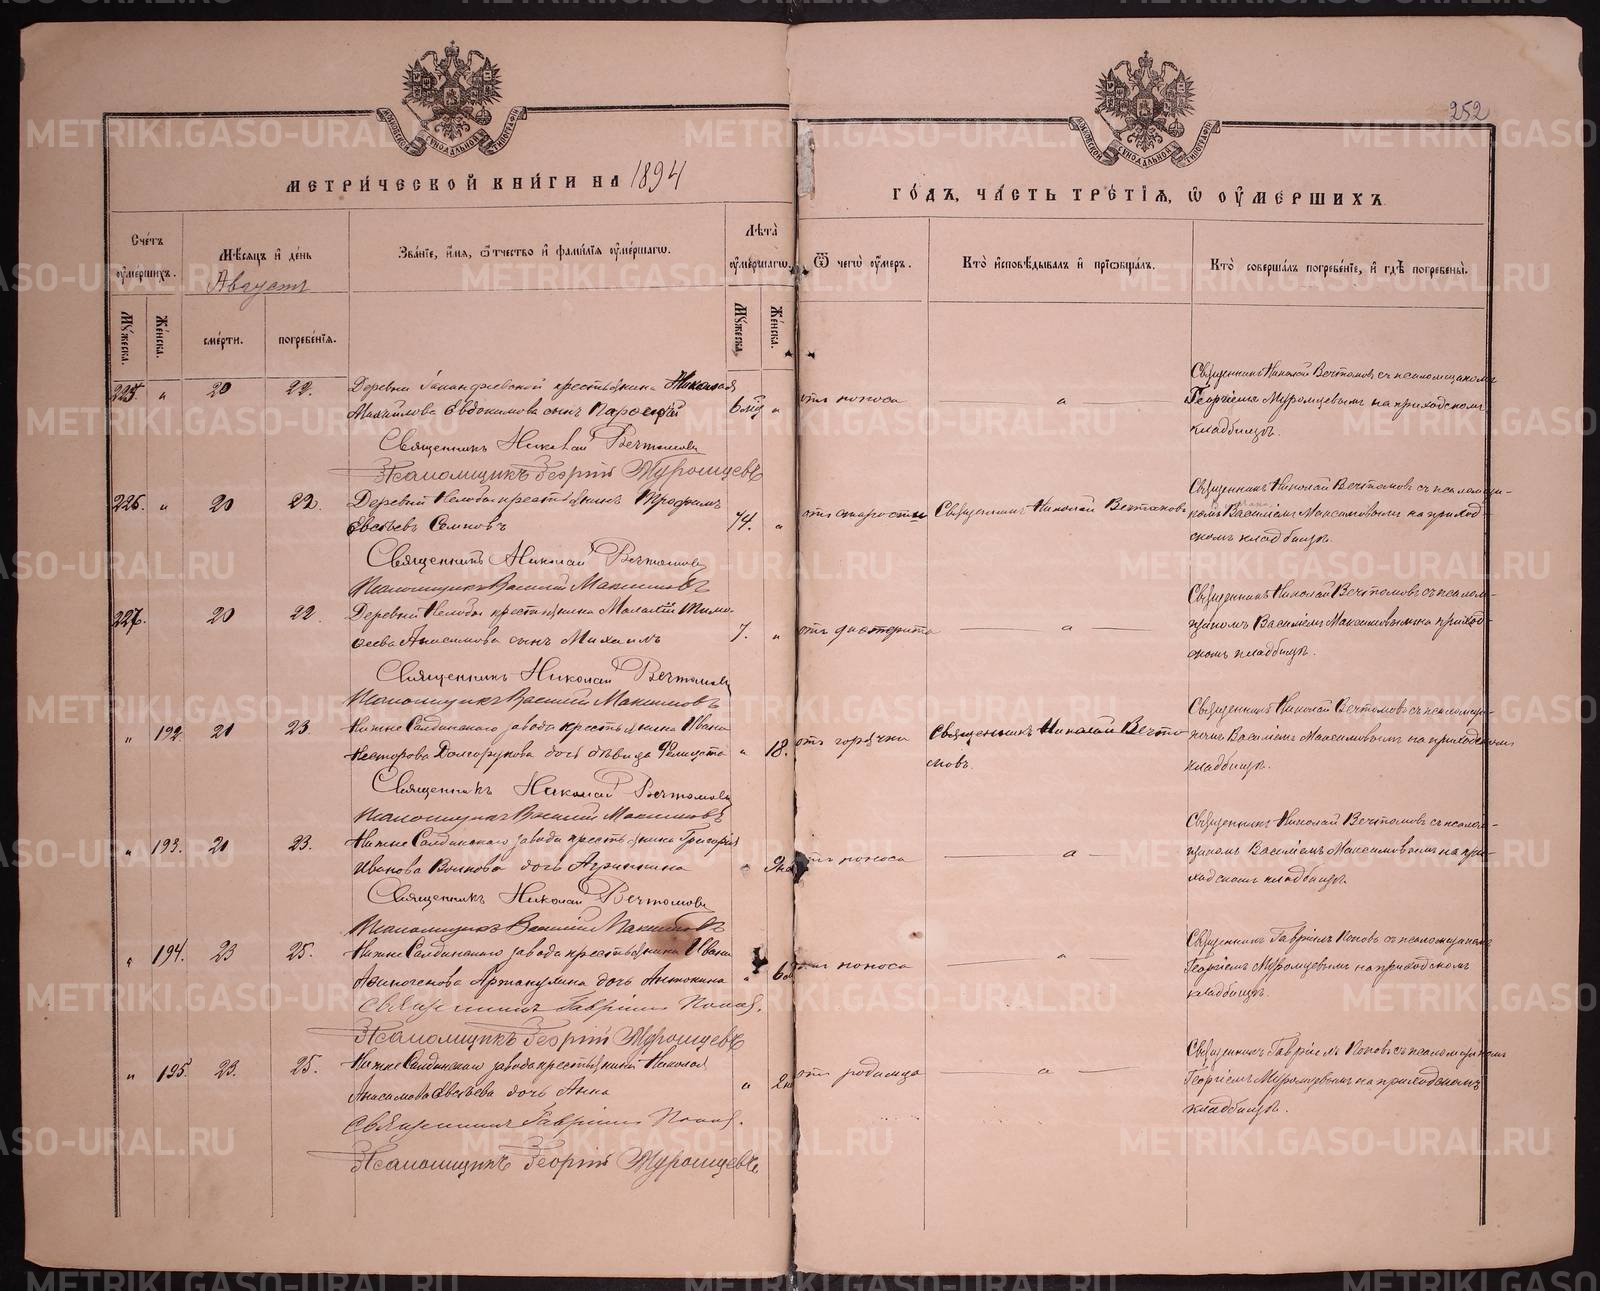 252
МЕТРИЧЕСКОЙ КНИГИ НА 1894
ГОДЪ, ЧАСТЬ ТРЕТІЯ, Ѽ ОУМЕРШИХЪ
Счетъ оумершихъ.
Мѣсяцъ и день
Августъ
Званіе, имя, ѿчество и фамилія оумершагѡ.
Лѣта оумершагѡ.
Ѿ чегѡ оумеръ.
Кто исповѣдывалъ и пріѡбщалъ.
Кто совершалъ погребеніе, и гдѣ погребены.
Мужеска.
Женска.
смерти.
погребенія.
Мужеска.
Женска.
225. " 20 22. Деревни крестьянина Николая
Михайлова Евдокимова сынъ 6 "
отъ поноса
Священникъ Николай Вечтомовъ съ псаломщикомъ
Георгіемъ Муромцевымъ на приходскомъ
кладбищѣ.
Священникъ Николай Вечтомовъ
Псаломщикъ Георгій Муромцевъ
226. " 20 22. Деревни Нелобы крестьянинъ Трофимъ
Евсѣевъ 74. "
отъ старости
Священникъ Николай Вечтомовъ
Священникъ Николай Вечтомовъ съ псаломщи-
комъ Василіемъ Максимовымъ на приход-
скомъ кладбищѣ.
Священникъ Николай Вечтомовъ
Псаломщикъ Василій Максимовъ
227. 20 22 Деревни Нелобы крестьянина Тимо-
Анисимова сынъ Михаилъ 7. "
отъ дифтерита
Священникъ Николай Вечтомовъ съ псалом-
щикомъ Василіемъ Максимовымъ на приход-
скомъ кладбищѣ.
Священникъ Николай Вечтомовъ
Псаломщикъ Василій Максимовъ
" 192. 21 23. Нижне Салдинскаго завода крестьянина Ивана
Несторова Долгорукова дочь дѣвица Фелицата " 18.
отъ горячки
Священникъ Николай Вечто-
мовъ.
Священникъ Николай Вечтомовъ съ псаломщи-
комъ Василіемъ Максимовымъ на приходскомъ
кладбищѣ.
Священникъ Николай Вечтомовъ
Псаломщикъ Василій Максимовъ
" 193. 21 23. Нижне Салдинскаго завода крестьянина Григорія
Иванова Волкова дочь
отъ поноса
Священникъ Николай Вечтомовъ съ псалом-
щикомъ Василіемъ Максимовымъ на при-
ходскомъ кладбищѣ.
Священникъ Николай Вечтомовъ
Псаломщикъ Василій Максимовъ
" 194. 23 25. Нижне Салдинскаго завода крестьянина Ивана
дочь Антонина " 6
отъ поноса
Священникъ Гавріилъ Поповъ съ псаломщикомъ
Георгіемъ Муромцевымъ на приходскомъ
кладбищѣ.
Священникъ Гавріилъ Поповъ.
Псаломщикъ Георгій Муромцевъ
" 195. 23. 25. Нижне Салдинскаго завода крестьянина Николая
Анисимова Евсѣева дочь Анна " 2
отъ родимца
Священникъ Гавріилъ Поповъ съ псаломщикомъ
Георгіемъ Муромцевымъ на приходскомъ
кладбищѣ.
Священникъ Гавріилъ Поповъ.
Псаломщикъ Георгій Муромцевъ
METRIKI.GASO-URAL.RU